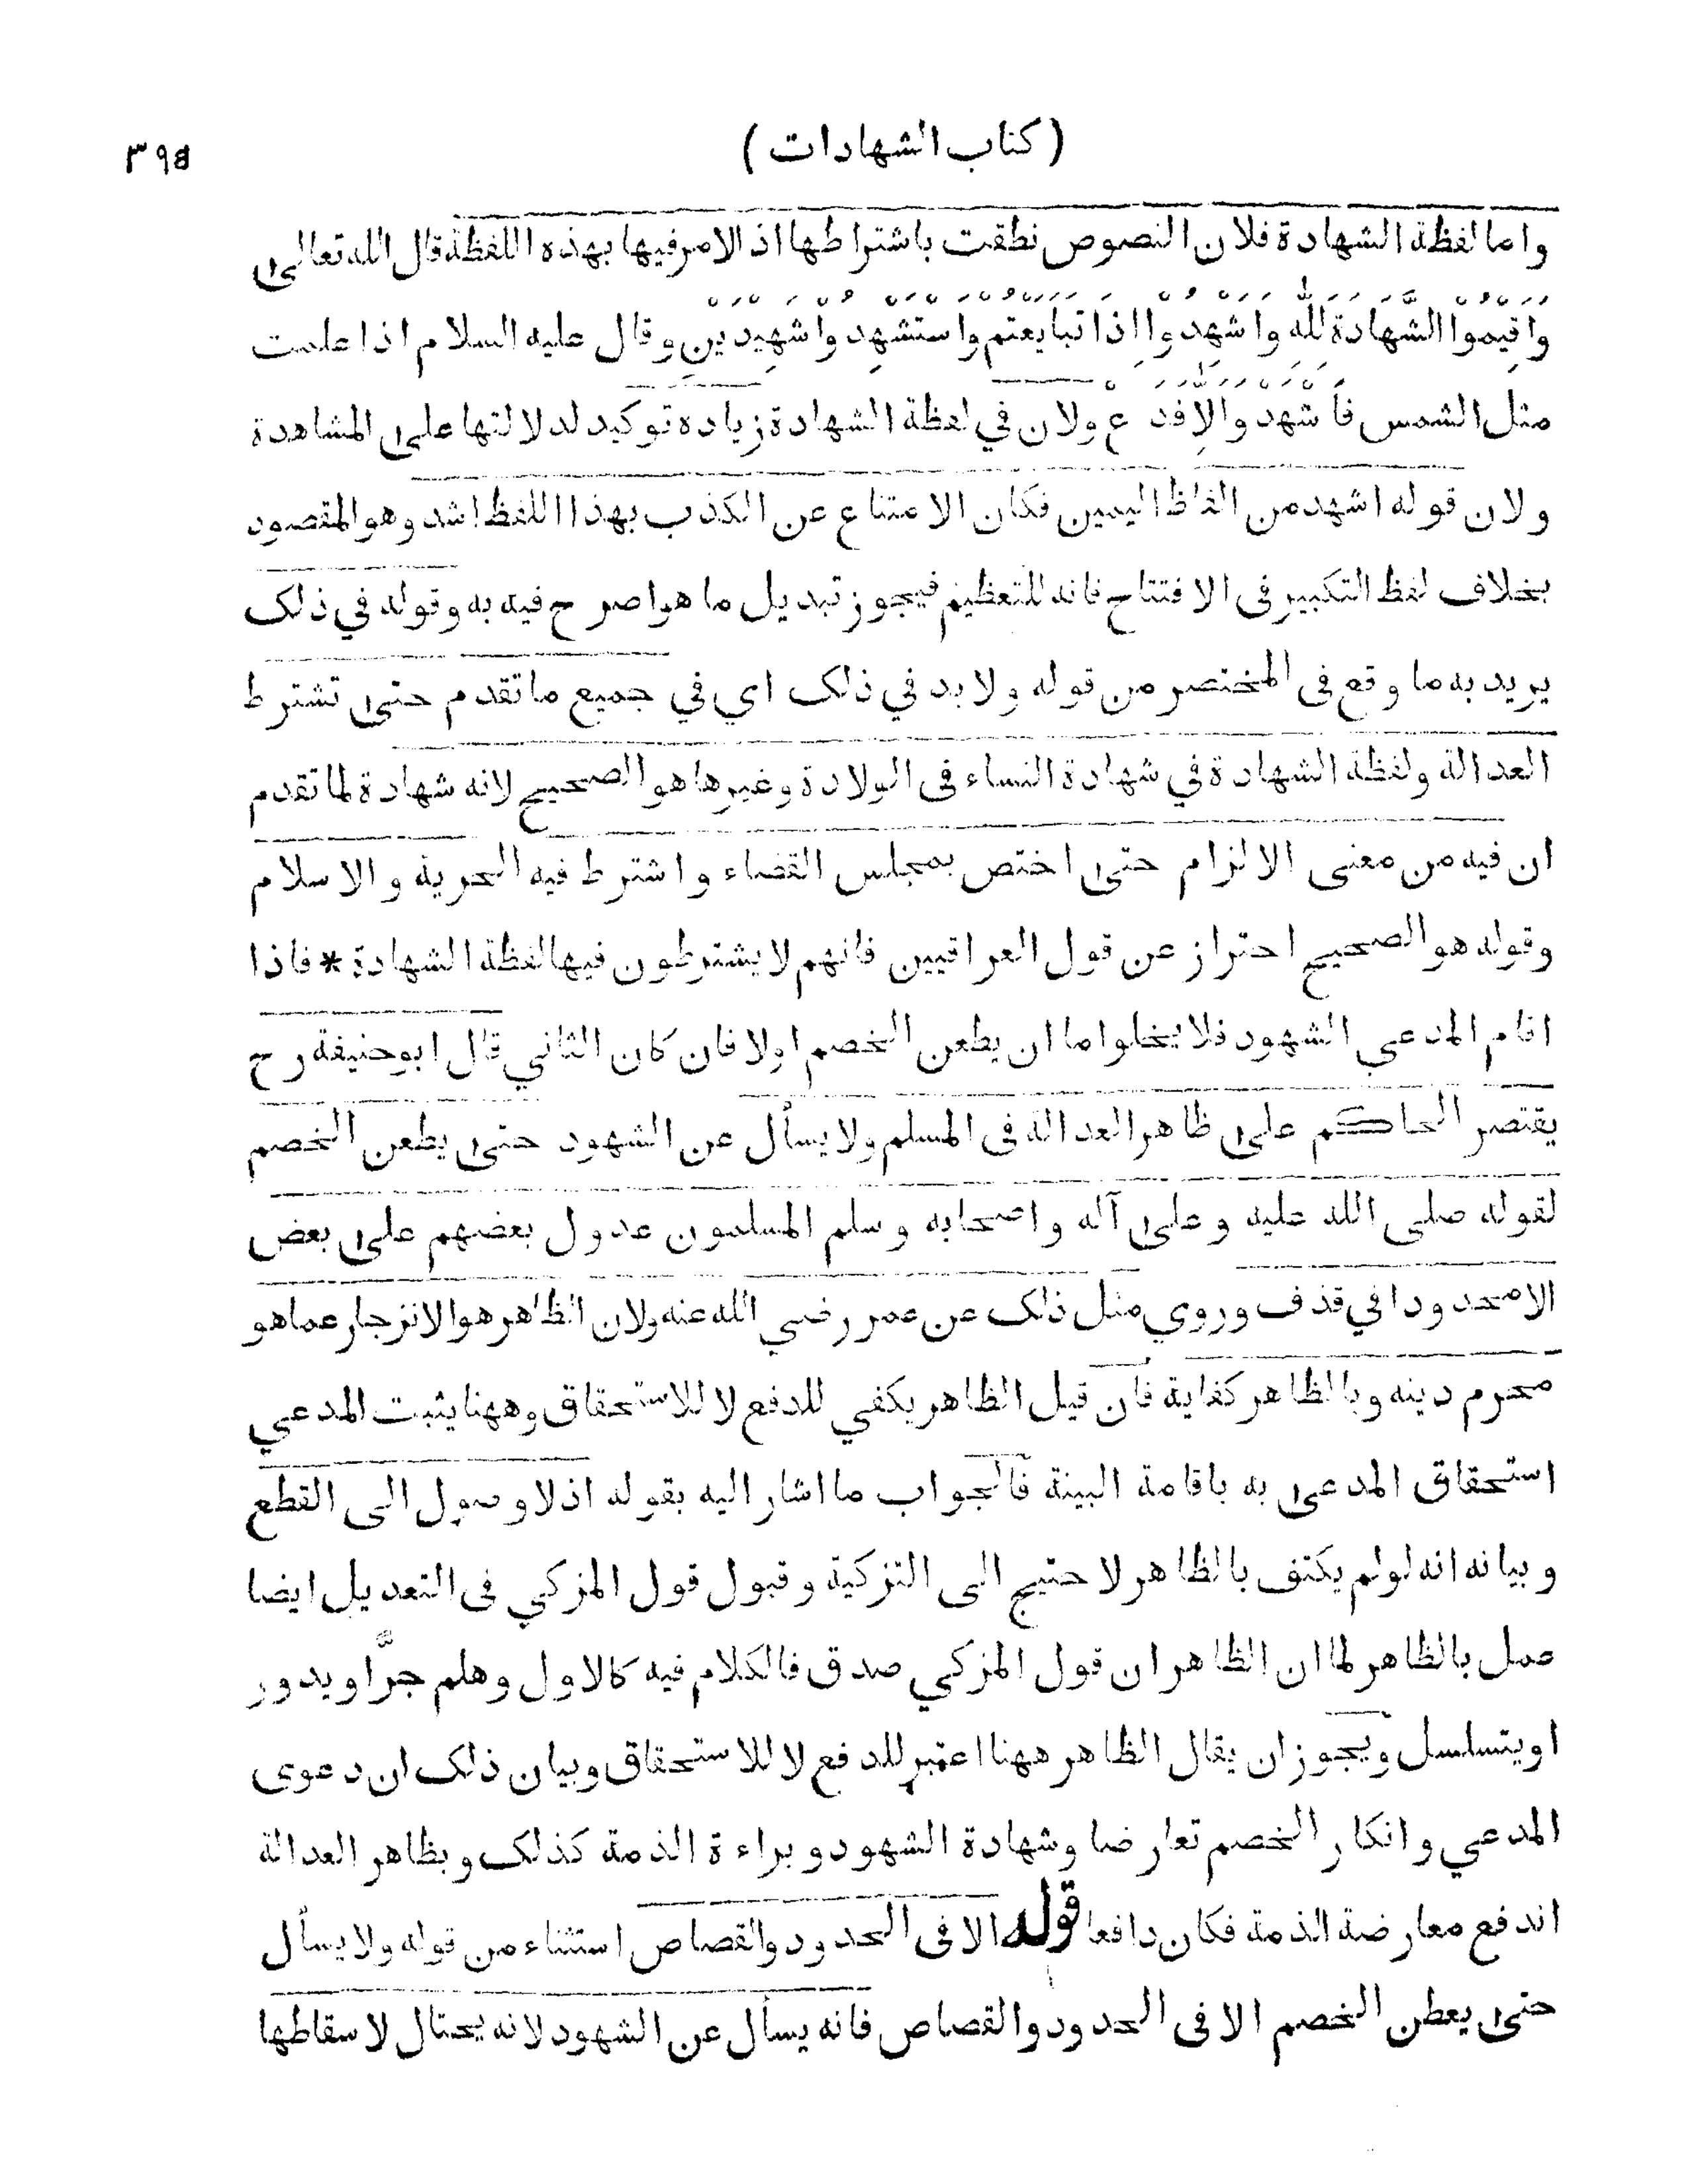 (كتاب الشهادات)
٣٩٥
واما لفظة الشهادة فلان النصوص نطقت باشتراطها اذ الامر فيها بهذه اللفظة قال الله تعالى
وَاقيموا الشَّهادةَ لِلّٰه وَاشهِدوا اذا تبايعتم واستشهِدُوا شهِيدين وقال عليه السلام اذا علمت
مثل الشمس فاشهد والا فدع ولان في لفظة الشهادة زيادة توكيد لدلالتها على المشاهدة
ولان قوله اشهد من الفاظ اليمين فكان الامتناع عن الكذب بهذا اللفظ اشد وهو المقصود
بخلاف لفظ التكبير في الافتتاح فانه للتعظيم فيجوز تبديل ما هو اصرح فيه به وقوله في ذلك
يريد به ما وقع في المختصر من قوله ولا بد في ذلك اي في جميع ما تقدم حتى تشترط
العدالة ولفظة الشهادة في شهادة النساء في الولادة وغيرها هو الصحيح لانه شهادة لما تقدم
ان فيه من معنى الالزام حتى اختص بمجلس القضاء واشترط فيه الحرية والاسلام
وقوله هو الصحيح احتراز عن قول العراقيين فانهم لا يشترطون فيها لفظة الشهادة * فاذا
اقام المدعي الشهود فلا يخلو اما ان يطعن الخصم اولا فان كان الثاني قال ابو حنيفة رح
يقتصر الحاكم على ظاهر العدالة في المسلم ولا يسأل عن الشهود حتى يطعن الخصم
لقوله صلى الله عليه وعلى آله واصحابه وسلم المسلمون عدول بعضهم على بعض
الا محدودا في قذف وروي مثل ذلك عن عمر رضي الله عنه ولان الظاهر هو الانزجار عما هو
محرم دينه وبالظاهر كفاية فان قيل الظاهر يكفي للدفع لا للاستحقاق وههنا يثبت المدعي
استحقاق المدعى به باقامة البينة فالجواب ما اشار اليه بقوله اذ لا وصول الى القطع
وبيانه انه لو لم يكتف بالظاهر لاحتيج الى التزكية وقبول قول المزكي في التعديل ايضا
عمل بالظاهر لما ان الظاهر ان قول المزكي صدق فالكلام فيه كالاول وهلم جرًّا ويدور
او يتسلسل ويجوز ان يقال الظاهر ههنا اعتبر للدفع لا للاستحقاق وبيان ذلك ان دعوى
المدعي وانكار الخصم تعارضا وشهادة الشهود وبراءة الذمة كذلك وبظاهر العدالة
اندفع معارضة الذمة فكان دافعا قوله الا في الحدود والقصاص استثناء من قوله ولا يسأل
حتى يعطن الخصم الا في الحدود والقصاص فانه يسأل عن الشهود لانه يحتال لاسقاطها